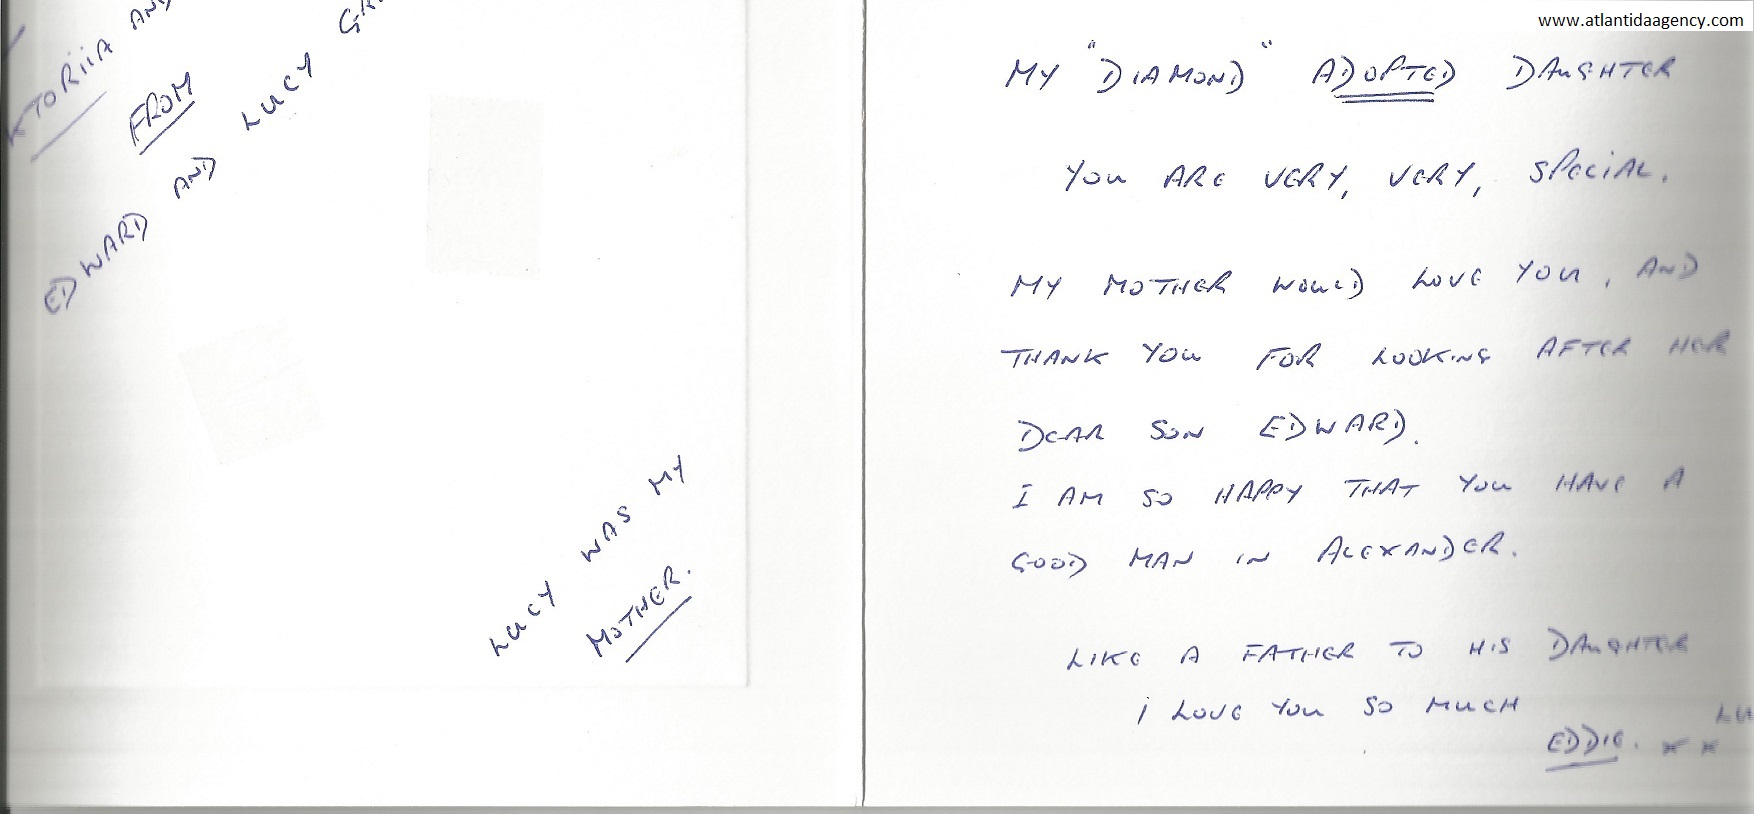 FROM
EDWARD AND LUCY
LUCY WAS MY
MOTHER.
www.atlantidaagency.com
MY "DIAMOND" ADOPTED DAUGHTER
YOU ARE VERY, VERY, SPECIAL.
MY MOTHER WOULD LOVE YOU, AND
THANK YOU FOR LOOKING AFTER HER
DEAR SON EDWARD.
I AM SO HAPPY THAT YOU HAVE A
GOOD MAN IN ALEXANDER.
LIKE A FATHER TO HIS DAUGHTER
I LOVE YOU SO MUCH
EDDIE. x x